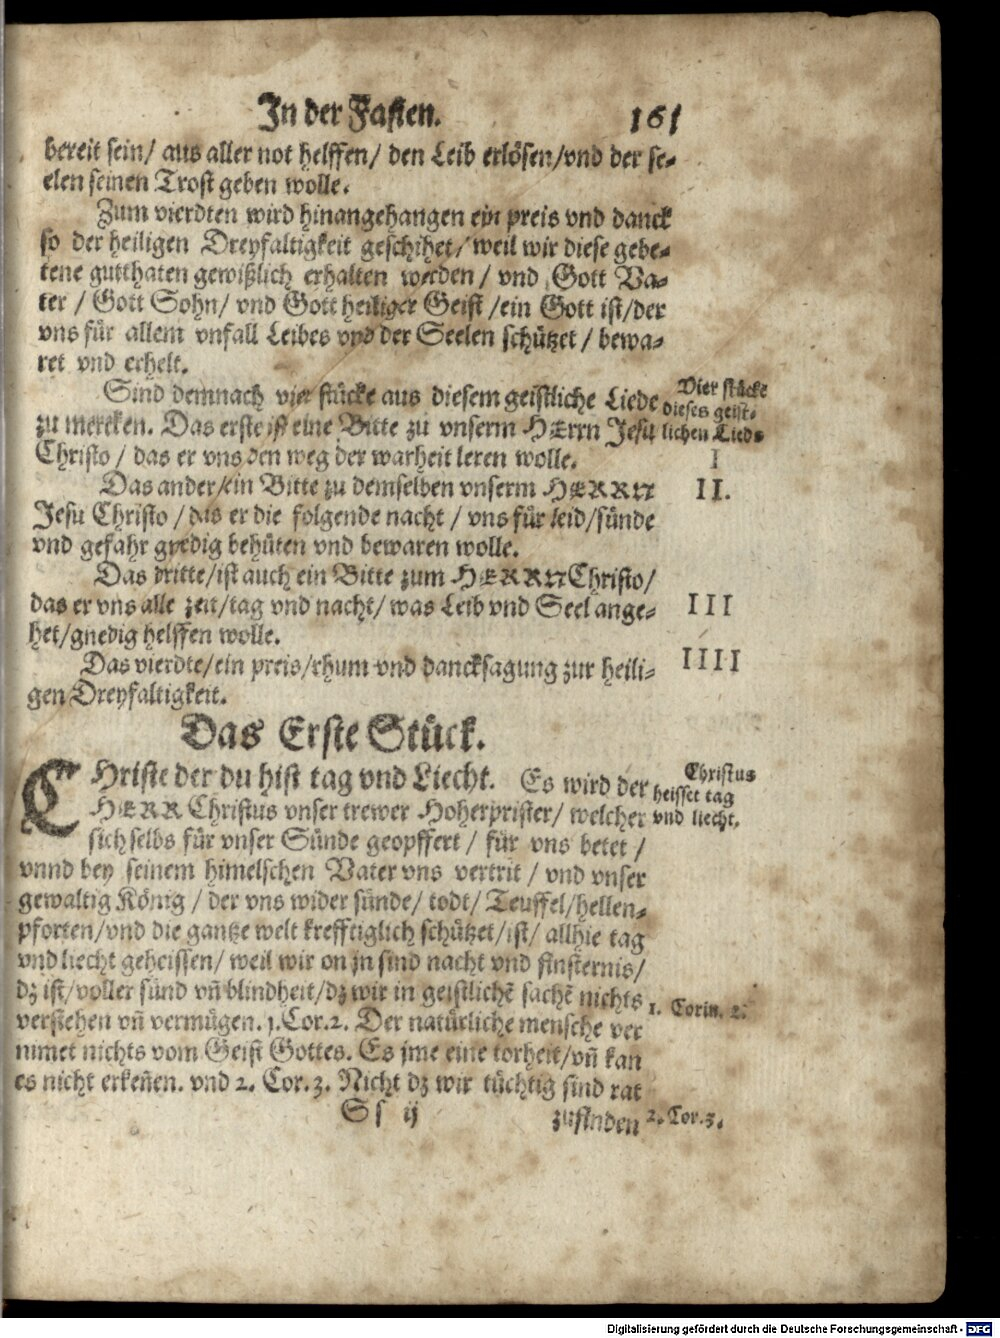 In der Fasten. 161
bereit sein/ aus aller not helffen/ den Leib erlösen/vnd der se-
elen seinen Trost geben wolle.
Zum vierdten wird hinangehangen ein preis vnd danck
so der heiligen Dreyfaltigkeit geschihet/ weil wir diese gebe-
tene gutthaten gewißlich erhalten werden / vnd Gott Va-
ter / Gott Sohn/ vnd Gott heiliger Geist /ein Gott ist/der
vns für allem vnfall Leibes vnd der Seelen schützet / bewa-
ret vnd erhelt.
Sind demnach vier stücke aus diesem geistliche Liede
zu mercken. Das erste ist eine Bitte zu vnserm HErrn Jesu
Christo / das er vns den weg der warheit leren wolle.
Vier stücke
dieses geist-
lichen Lieds
I
Das ander/ein Bitte zu demselben vnserm HERRN
Jesu Christo / das er die folgende nacht / vns für leid/sünde
vnd gefahr gnedig behüten vnd bewaren wolle.
II.
Das dritte/ist auch ein Bitte zum HERRN Christo/
das er vns alle zeit/tag vnd nacht/ was Leib vnd Seel ange-
het/gnedig helffen wolle.
III
Das vierdte/ein preis/rhum vnd dancksagung zur heili-
gen Dreyfaltigkeit.
IIII
Das Erste Stück.
CHriste der du bist tag vnd Liecht. Es wird der
HERR Christus vnser trewer Hoherprister/ welcher
sich selbs für vnser Sünde geopffert / für vns betet /
vnnd bey seinem himelschen Vater vns vertrit / vnd vnser
gewaltig König / der vns wider sünde/ todt/ Teuffel/hellen-
pforten/vnd die gantze welt krefftiglich schützet/ist/ allhie tag
vnd liecht geheissen/ weil wir on jn sind nacht vnd finsternis/
dz ist/voller sünd vñ blindheit/dz wir in geistlichẽ sachẽ nichts
verstehen vñ vermügen. 1.Cor.2. Der natürliche mensche ver
nimet nichts vom Geist Gottes. Es jme eine torheit/vñ kan
es nicht erkeñen. vnd 2. Cor.3. Nicht dz wir tüchtig sind rat
Christus
heisset tag
vnd liecht.
1. Corin. 2.
2. Cor.3.
Ss ij zufinden
Digitalisierung gefördert durch die Deutsche Forschungsgemeinschaft - DFG